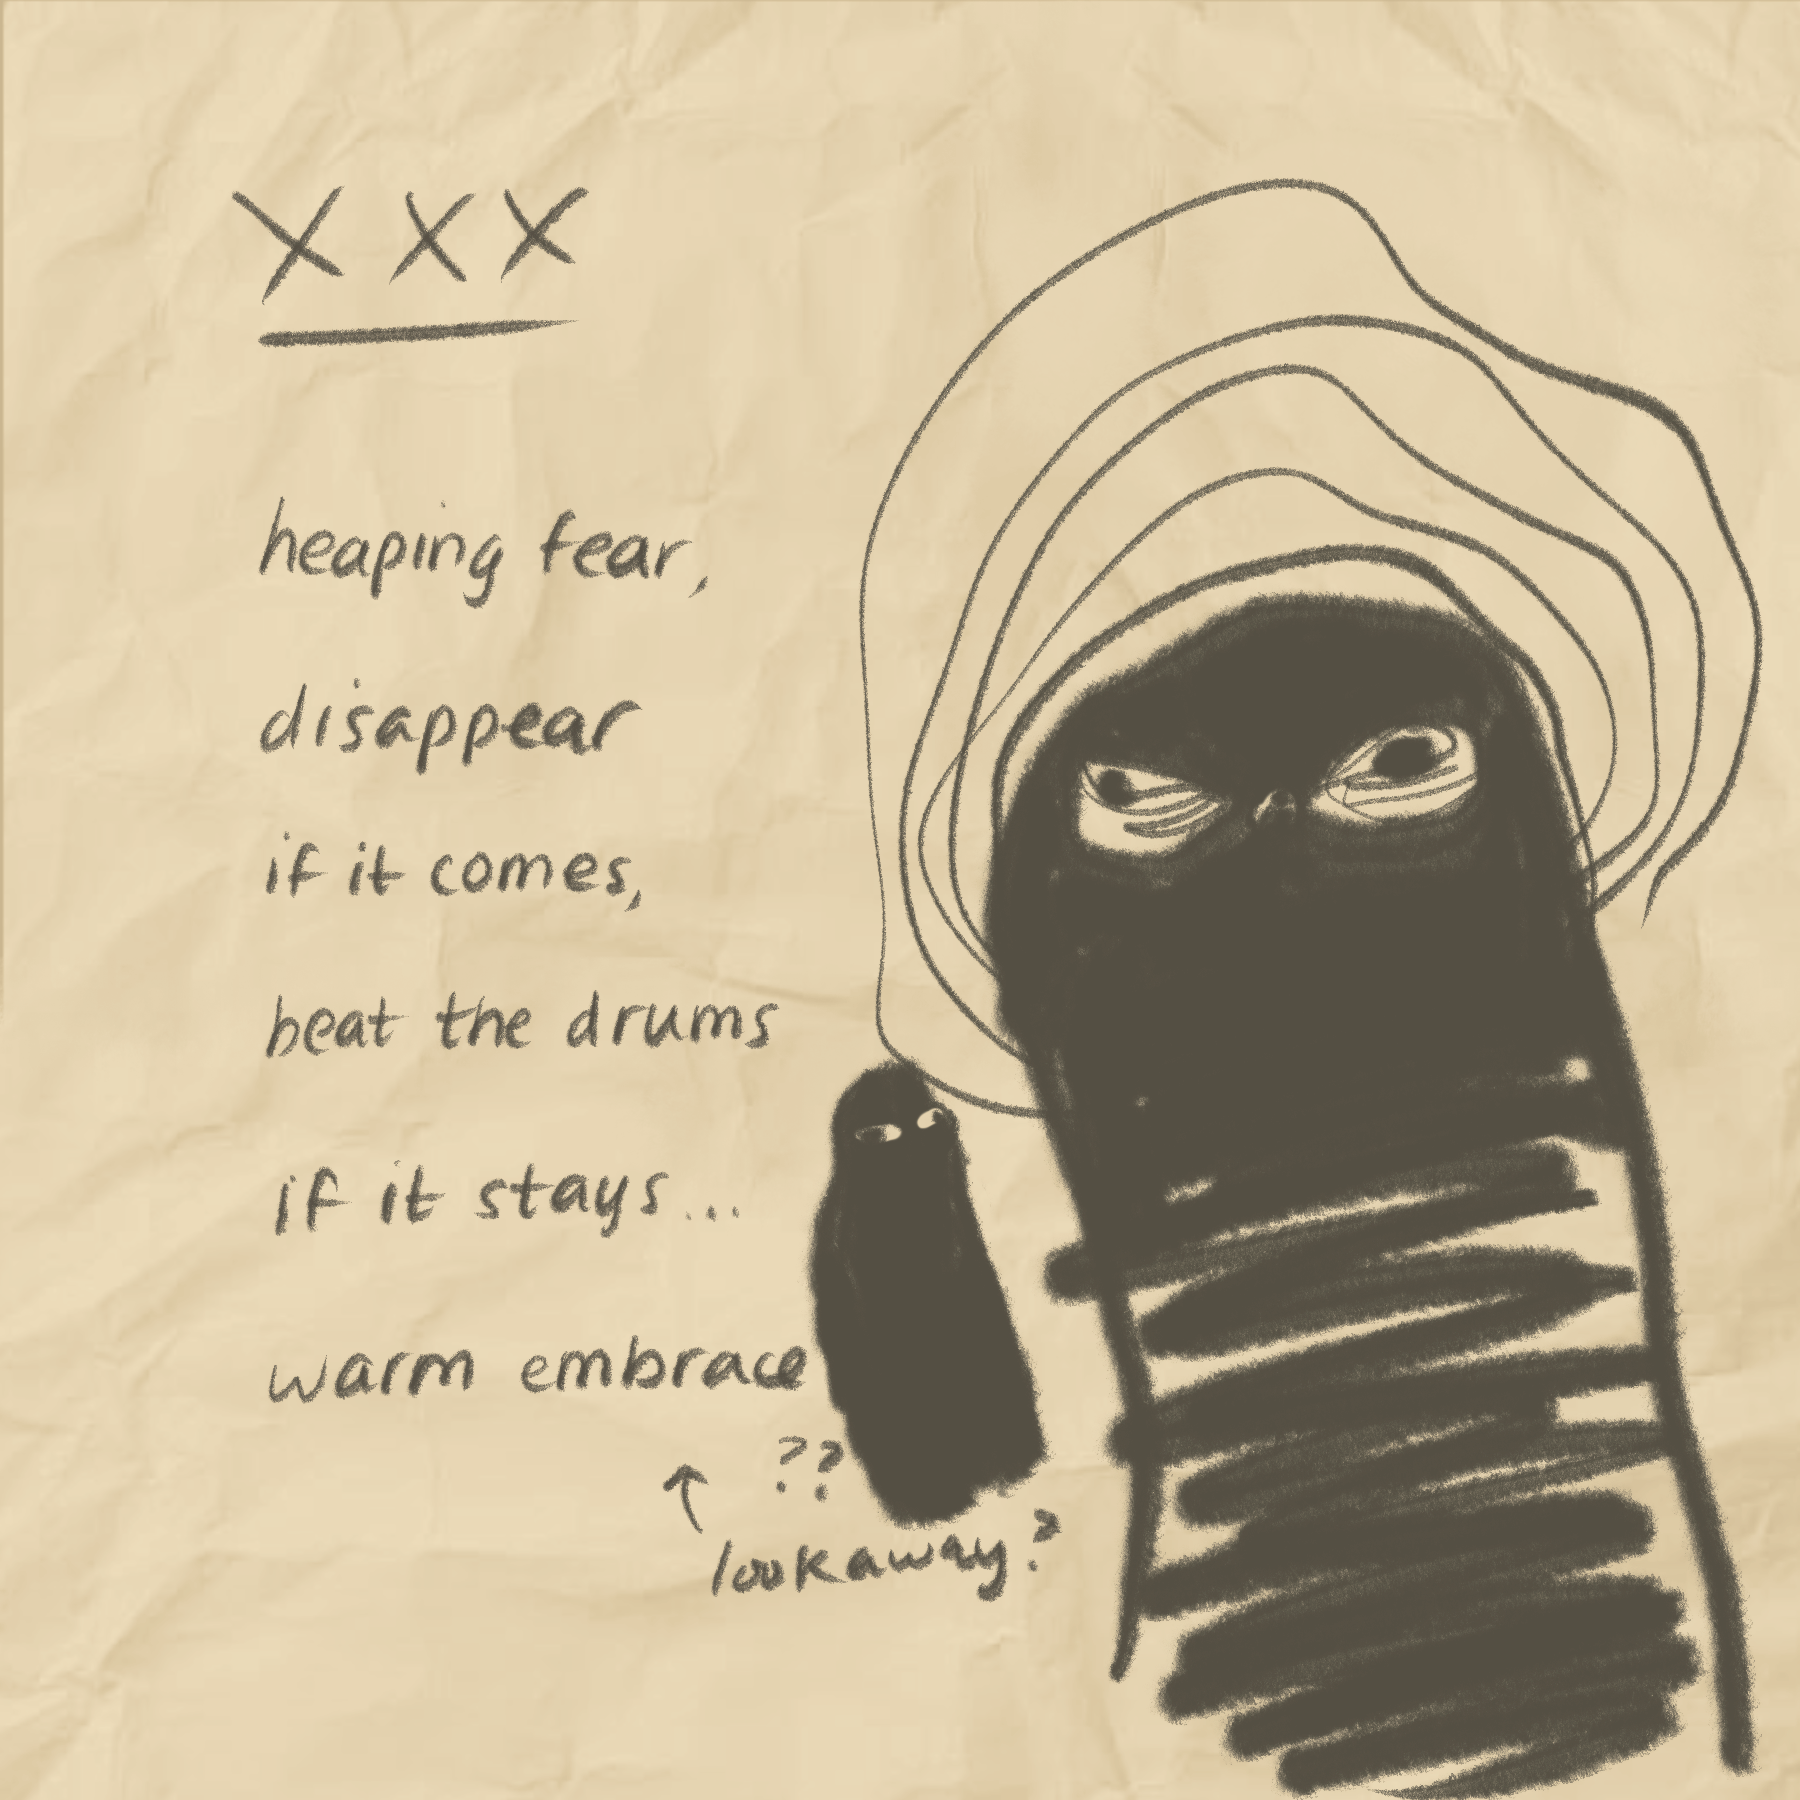 xxx
heaping fear,
disappear
if it comes,
beat the drums
if it stays...
warm embrace
??
↑
lookaway?